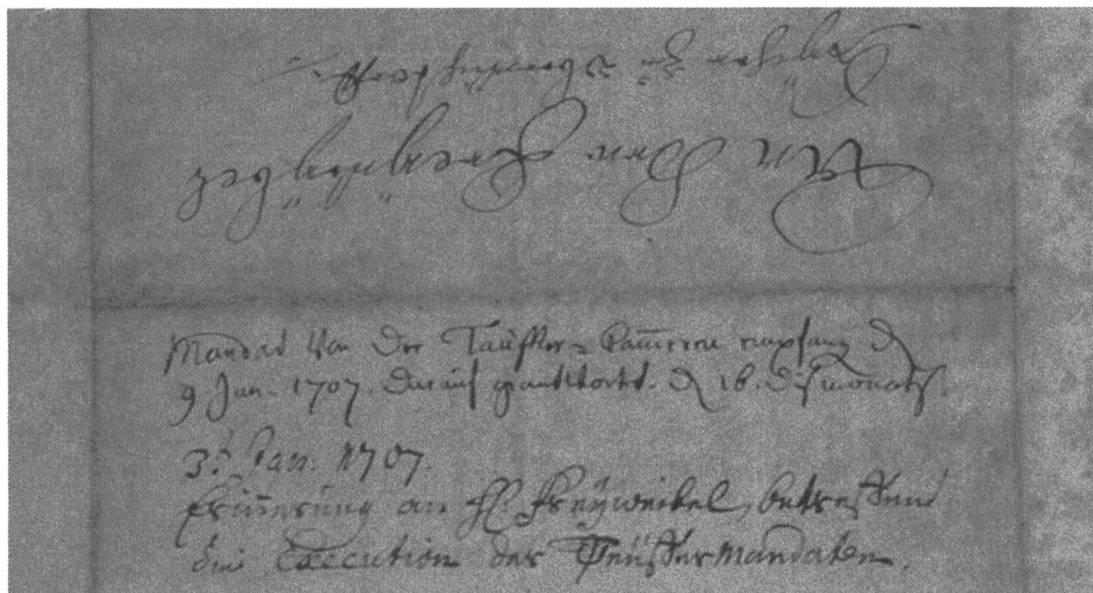 An Freyweibel
zu
Mandat Von Der Täuffer=Cam̄eren empfang d
9 Jan. 1707. Darauf geantwortet. d 16. diß monats.
3.t Jan. 1707.
Erin̄erung an Hl Freyweibel, betreffend
die Execution der Teüffermandaten.